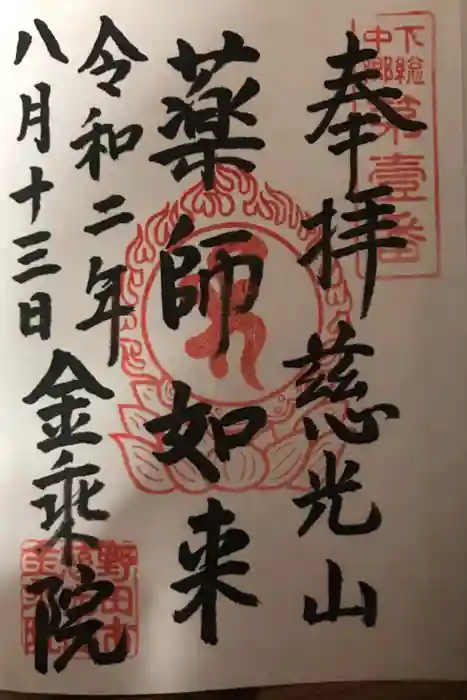 奉拝
慈光山
薬師如来
令和二年
八月十三日
金乗院
下総
中郷
第壹番
野田市